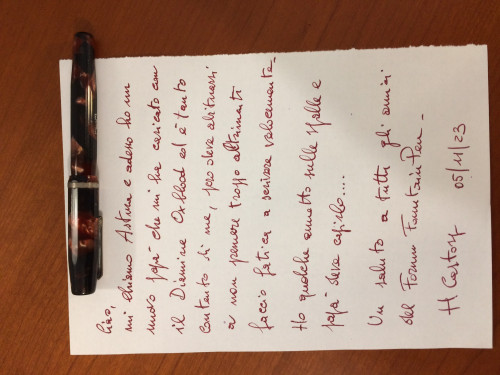 Ciao,
mi chiamo Astura e adesso ho un
nuovo papà che mi ha caricato con
il Diamine Oxblood ed è tanto
contento di me, però deve abituarsi
a non premere troppo altrimenti
faccio fatica a scrivere velocemente.
Ho qualche annetto sulle spalle e
papà deve capirlo....
Un saluto a tutti gli amici
del Forum FountainPen -
H Castory
05/11/23